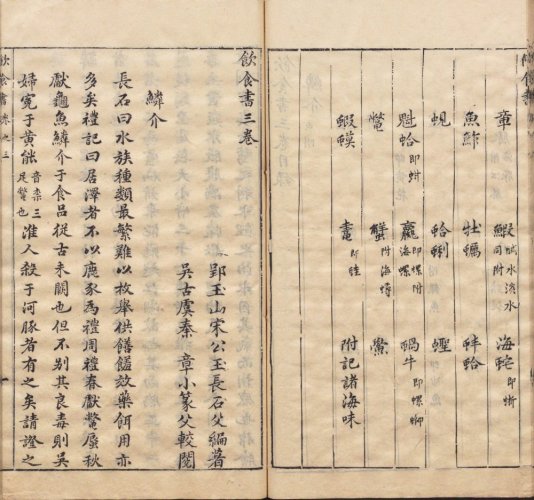 章 鰕 鹹水淡水同附 海蛇
魚鮓 牡蠣 蚌蛤
蜆 蛤蜊 蟶
魁蛤 即蚶 蠃 即螺附海螺 蝸牛
鱉 蟹 附海蟳 鱟
蝦蟆 鼃 即蛙 附記諸海味
飲食書三卷
郢玉山宋公玉長石父編著
吳古虞秦 章小篆父較閱
鱗介
長石曰水族種類最繁難以枚舉供饍饈效藥餌用亦
多矣禮記曰居澤者不以鹿豕為禮周禮春獻鱉蜃秋
獻龜魚鱗介于食品從古未闕也但不別其良毒則吳
婦冤于黃能 音柰三足鱉也 淮人殺于河豚者有之矣請證之
飲食書 卷之三